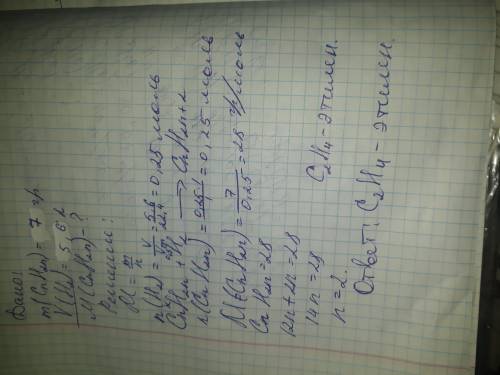 Дано:
m(CnH2n) = 7 гр
V(H2) = 5,6 л
M(CnH2n) - ?
Решение:
M = m/n
n(H2) = V/Vm = 5,6/22,4 = 0,25 моль
CnH2n + H2 → CnH2n+2
n(CnH2n) = = 0,25 моль
M(CnH2n) = 7/0,25 = 28 гр/моль
CnH2n = 28
12n + 2n = 28
14n = 28
n = 2. C2H4 - этилен.
Ответ: C2H4 - этилен.